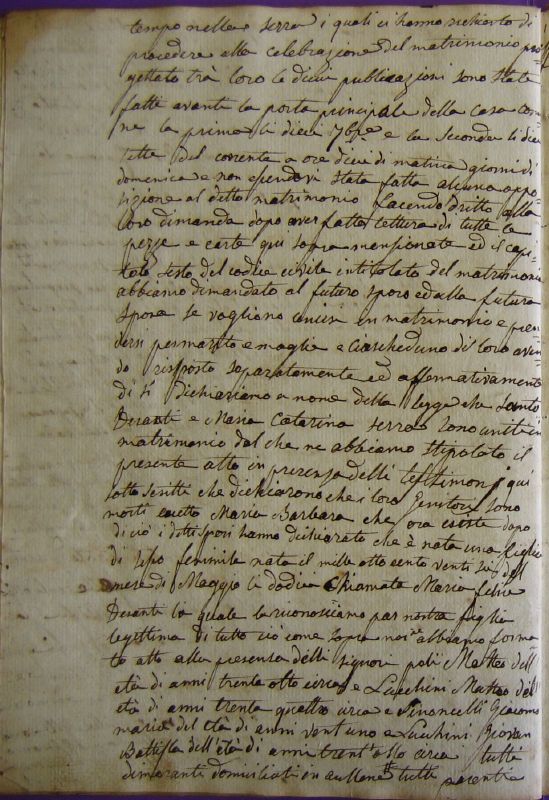 tempo nella serra i quali ci hanno richiesto di
procedere alla celebrazione del matrimonio pro
gettato trà loro le dicui publicazioni sono state
fatte avanti la porta principale della casa com
ne la prima li dieci 7bre e la seconda li dici
sette del corrente a ore dieci di matina giorni di
domenica e non essendovi stata fatta alcuna oppo
sizione al ditto matrimonio facendo dritto alla
loro dimanda dopo aver fatto lettura di tutte le
pezze e carte qui sopra menzionate ed il capi
tolo sesto del codice civile intitolato del matrimonio
abbiamo dimandato al futuro sposo ed alla futura
sposa se vogliono unirsi in matrimonio e pren
dersi per marito e moglie e ciascheduno di loro aven
do risposto separatamente ed affermativamente
di sì dichiariamo a nome della legge che Santo
Desanti e Maria Catarina serra sono uniti in
matrimonio del che ne abbiamo stipolato il
presente atto in presenza delli testimonj qui
sotto scritti che dichiarono che i loro Genitori sono
morti eccetto Maria Barbara che ora esiste dopo
di ciò i ditti sposi hanno dichiarato che è nata una figlia
di sesso feminile nata il mille otto cento venti sei del
mese di Maggio li dodici Chiamata Maria felice
Desanti la quale la riconosciamo par nostra figlia
legittima di tutto ciò come sopra noi abbiamo forma
to atto alla presenza delli signori poli Matteo dell
età di anni trenta otto circa e Lucchini Matteo dell
età di anni trenta quattro circa e Sinoncelli Giacomo
maria del età di anni vent uno e Lucchini Giovan
Battista dell'età di anni trent'otto circa tutti
dimoranti domiciliati in aullene tutti parenti